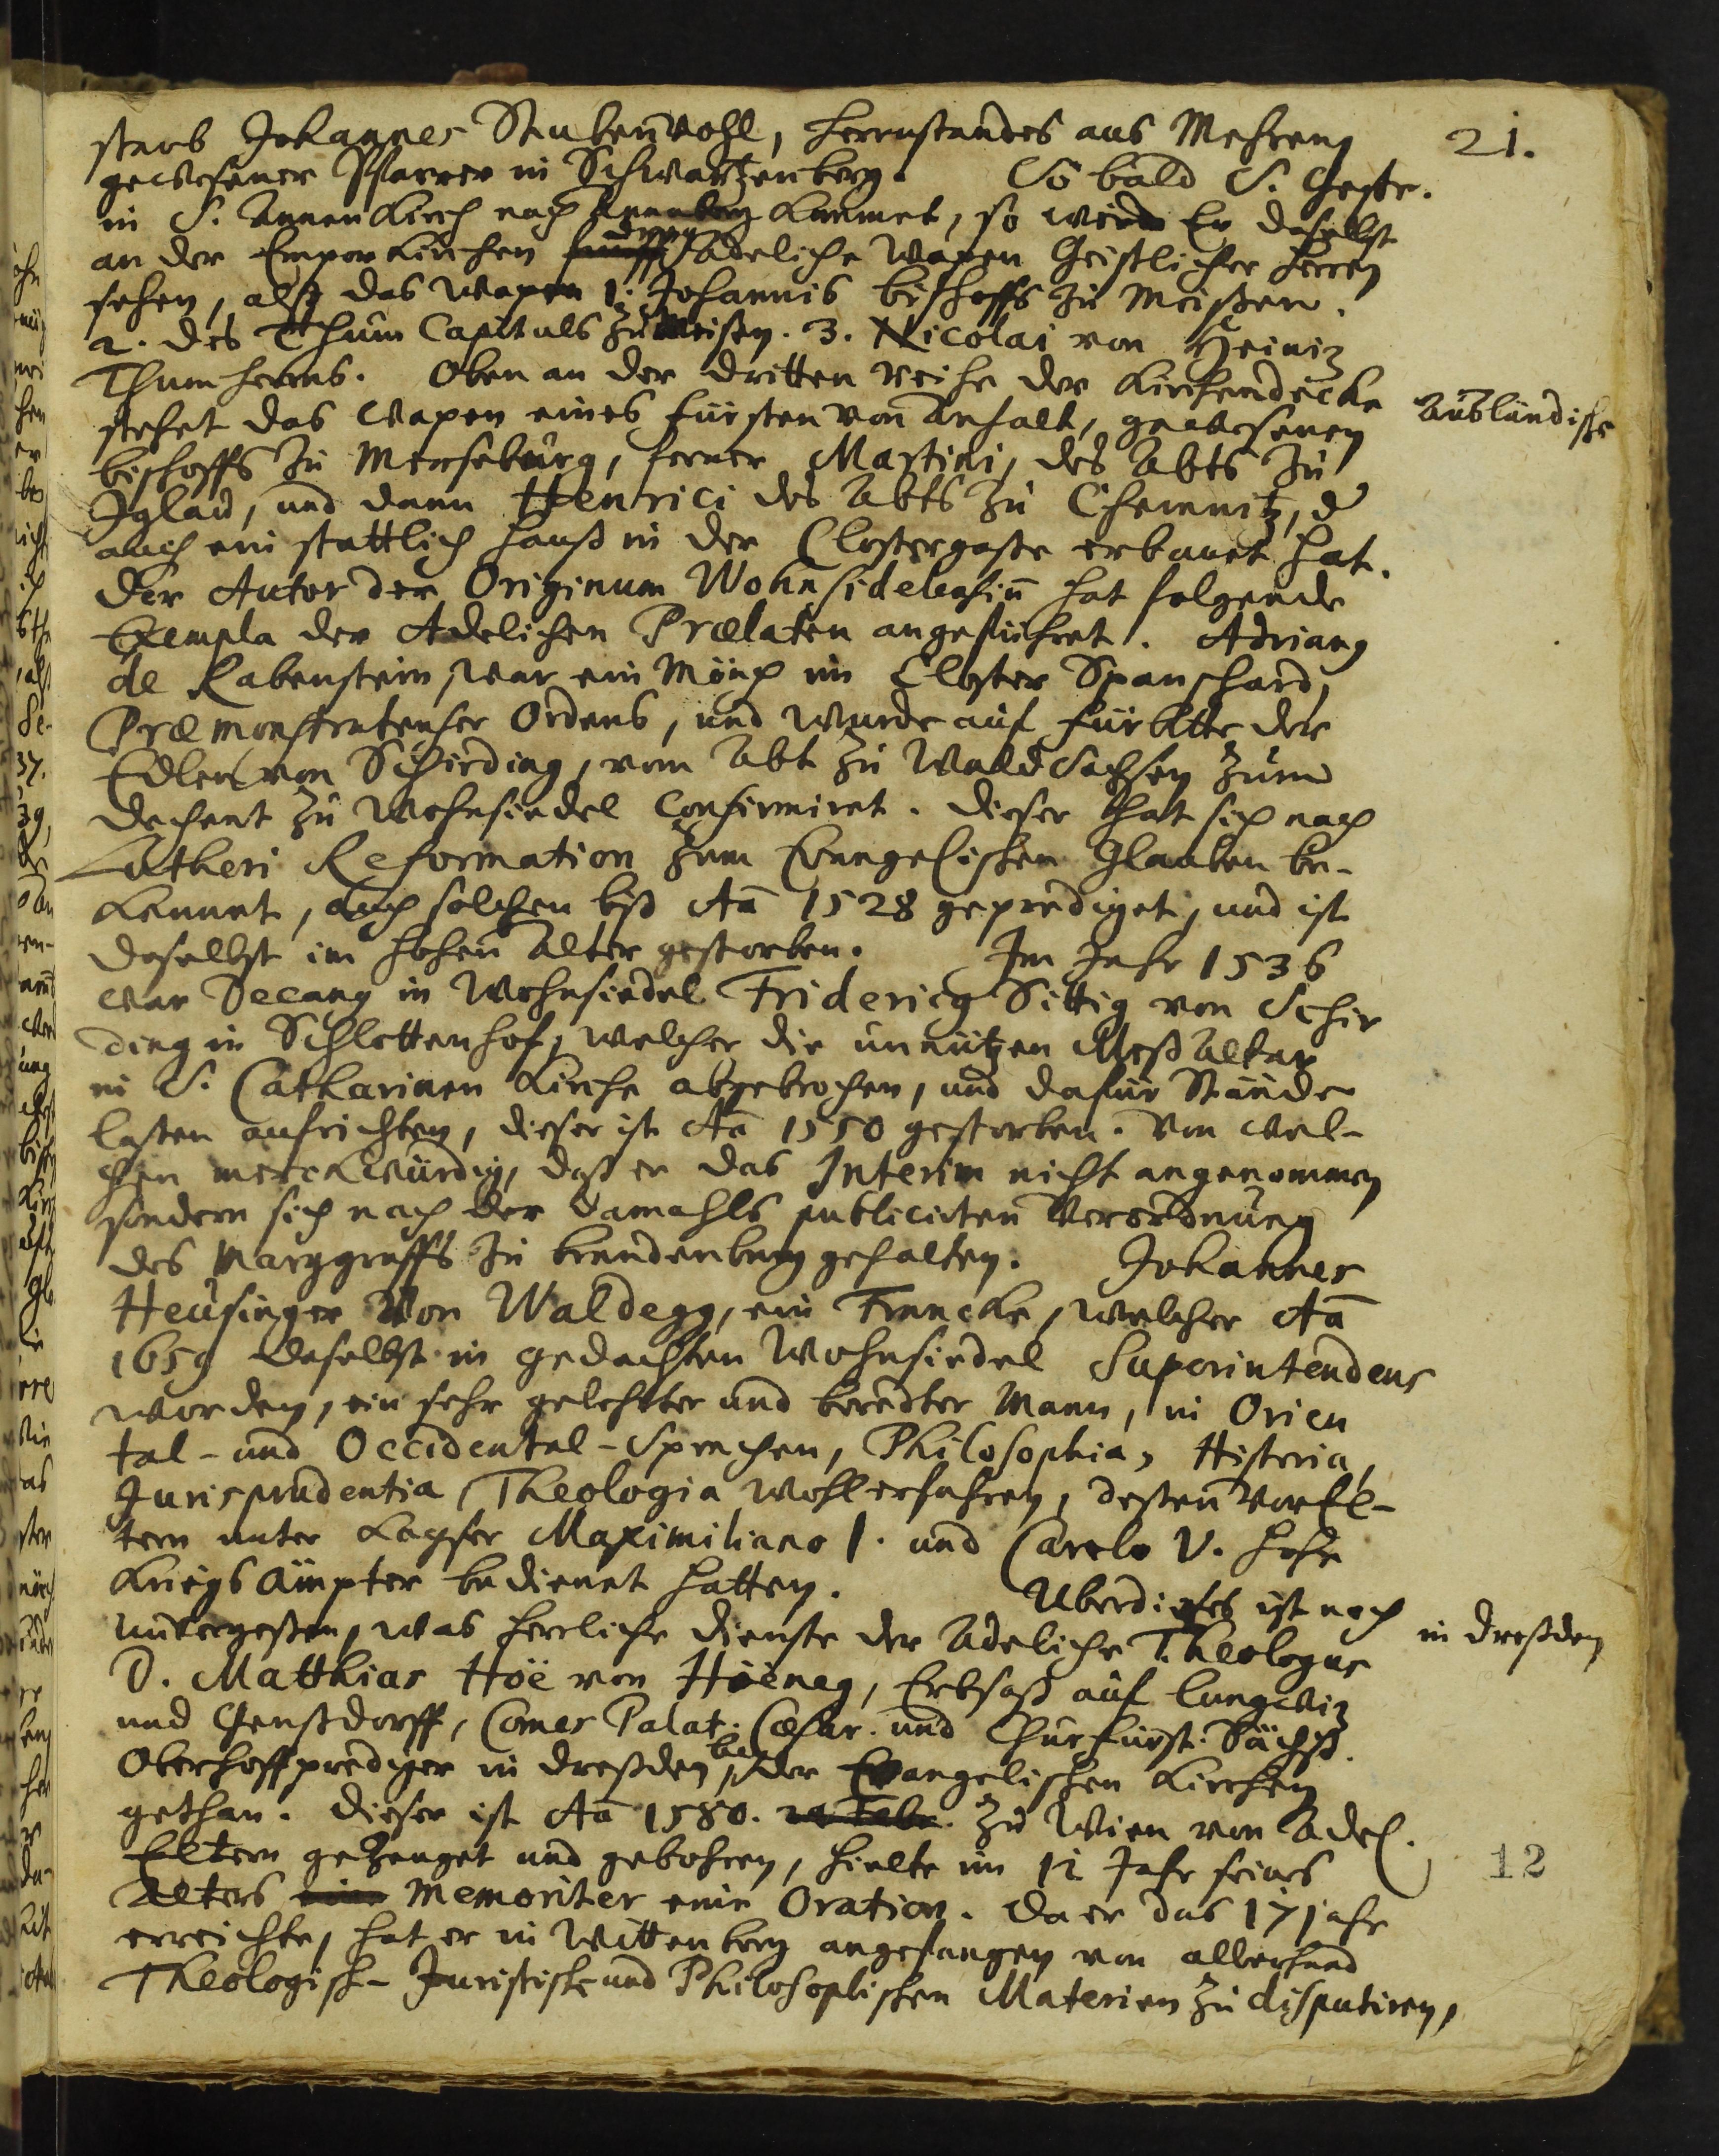 21.
starb Johannes Stubenvohl, Herrnstandes aus Mehren
gewesener Pfarrer in Schwartzenberg. So bald S. Gestr.
in S. Annen Kirch nach Annaberg kommet, so wird Er daselbst
an der Empor Kirchen drey Adeliche Wapen Geistlicher Herren
sehen, alß das Wapen 1. Johannis Bischoffs zu Meißen.
2. des Thum Capituls zu Meisen. 3. Nicolai von Heiniz
Thumherrns. Oben an der dritten Reihe der Kirchendecke
Ausländische
stehet das Wapen eines Fürsten von Anhalt, gewesenen
Bischoffs zu Merseburg, ferner Martini, des Abts zu
Iglau, und dann Henrici des Abts zu Chemnitz, d
auch ein stattlich Hauß in der Clostergaße erbauet hat.
Der Autor der Originum Wohnsidelensiū hat folgende
Exempla der Adelichen Prælaten angeführet. Adrianꝰ
de Rabenstein, war ein Mönch im Closter Spanshard,
Præmonstratenser Ordens, und wurde auf Fürbitte der
Edlen von Schirding, vom Abt zu Waldsachsen zum
Dechent zu Wohnsiedel Confirmiret. Dieser that sich nach
Lutheri Reformation zum Evangelischen Glauben be-
kennet, auch solchen biß Aō 1528 geprediget, und ist
daselbst im hohen Alter gestorben. Im Jahr 1536
war Decanꝰ in Wohnsiedel Fridericꝰ Sittig von Schir
ding in Schlottenhof, welcher die unnützen Meß Altar
in S. Catharinen Kirche abgebrochen, und dafür Stände
laßen aufrichten, dieser ist Aō 1550 gestorben. Von wel-
chen merckwürdig, daß er das Interim nicht angenommen
sondern sich nach der damahls publicirten Verordnung
des Marggraffs zu Brandenburg gehalten. Johannes
Heusinger von Waldegg, ein Francke, welcher Aō
1659 daselbst in gedachten Wohnsiedel Superintendens
worden, ein sehr gelehrter und beredter Mann, in Orien
tal- und Occidental-Sprachen, Philosophia, Historia,
Jurisprudentia, Theologia wohl erfahren, deßen Vor El-
tern unter Kayser Maximiliano I. und Carolo V. hohe
Kriegs Ämpter bedienet hatten. Uberdieses ist noch
in Dreßden
unvergeßen, was herrliche Dienste der Adeliche Theologus
D. Matthias Höe von Höeneg, Erbsaß auf Lungwiz
und Genßdorff, Comes Palat. Cæsar. und Churfürst. Sächß.
Oberhoffprediger in Dreßden, bey der Evangelischen Kirchen
gethan. Dieser ist Aō 1580. 24 Febr. zu Wien von Adel.
Eltern gezeuget und gebohren, hielte im 12 Jahr seines
12
Alters eine Memoriter eine Oration. Da er das 17 Jahr
erreichte, hat er in Wittenberg angefangen von allerhand
Theologisch- Juristisch- und Philosophischen Materien zu disputiren,